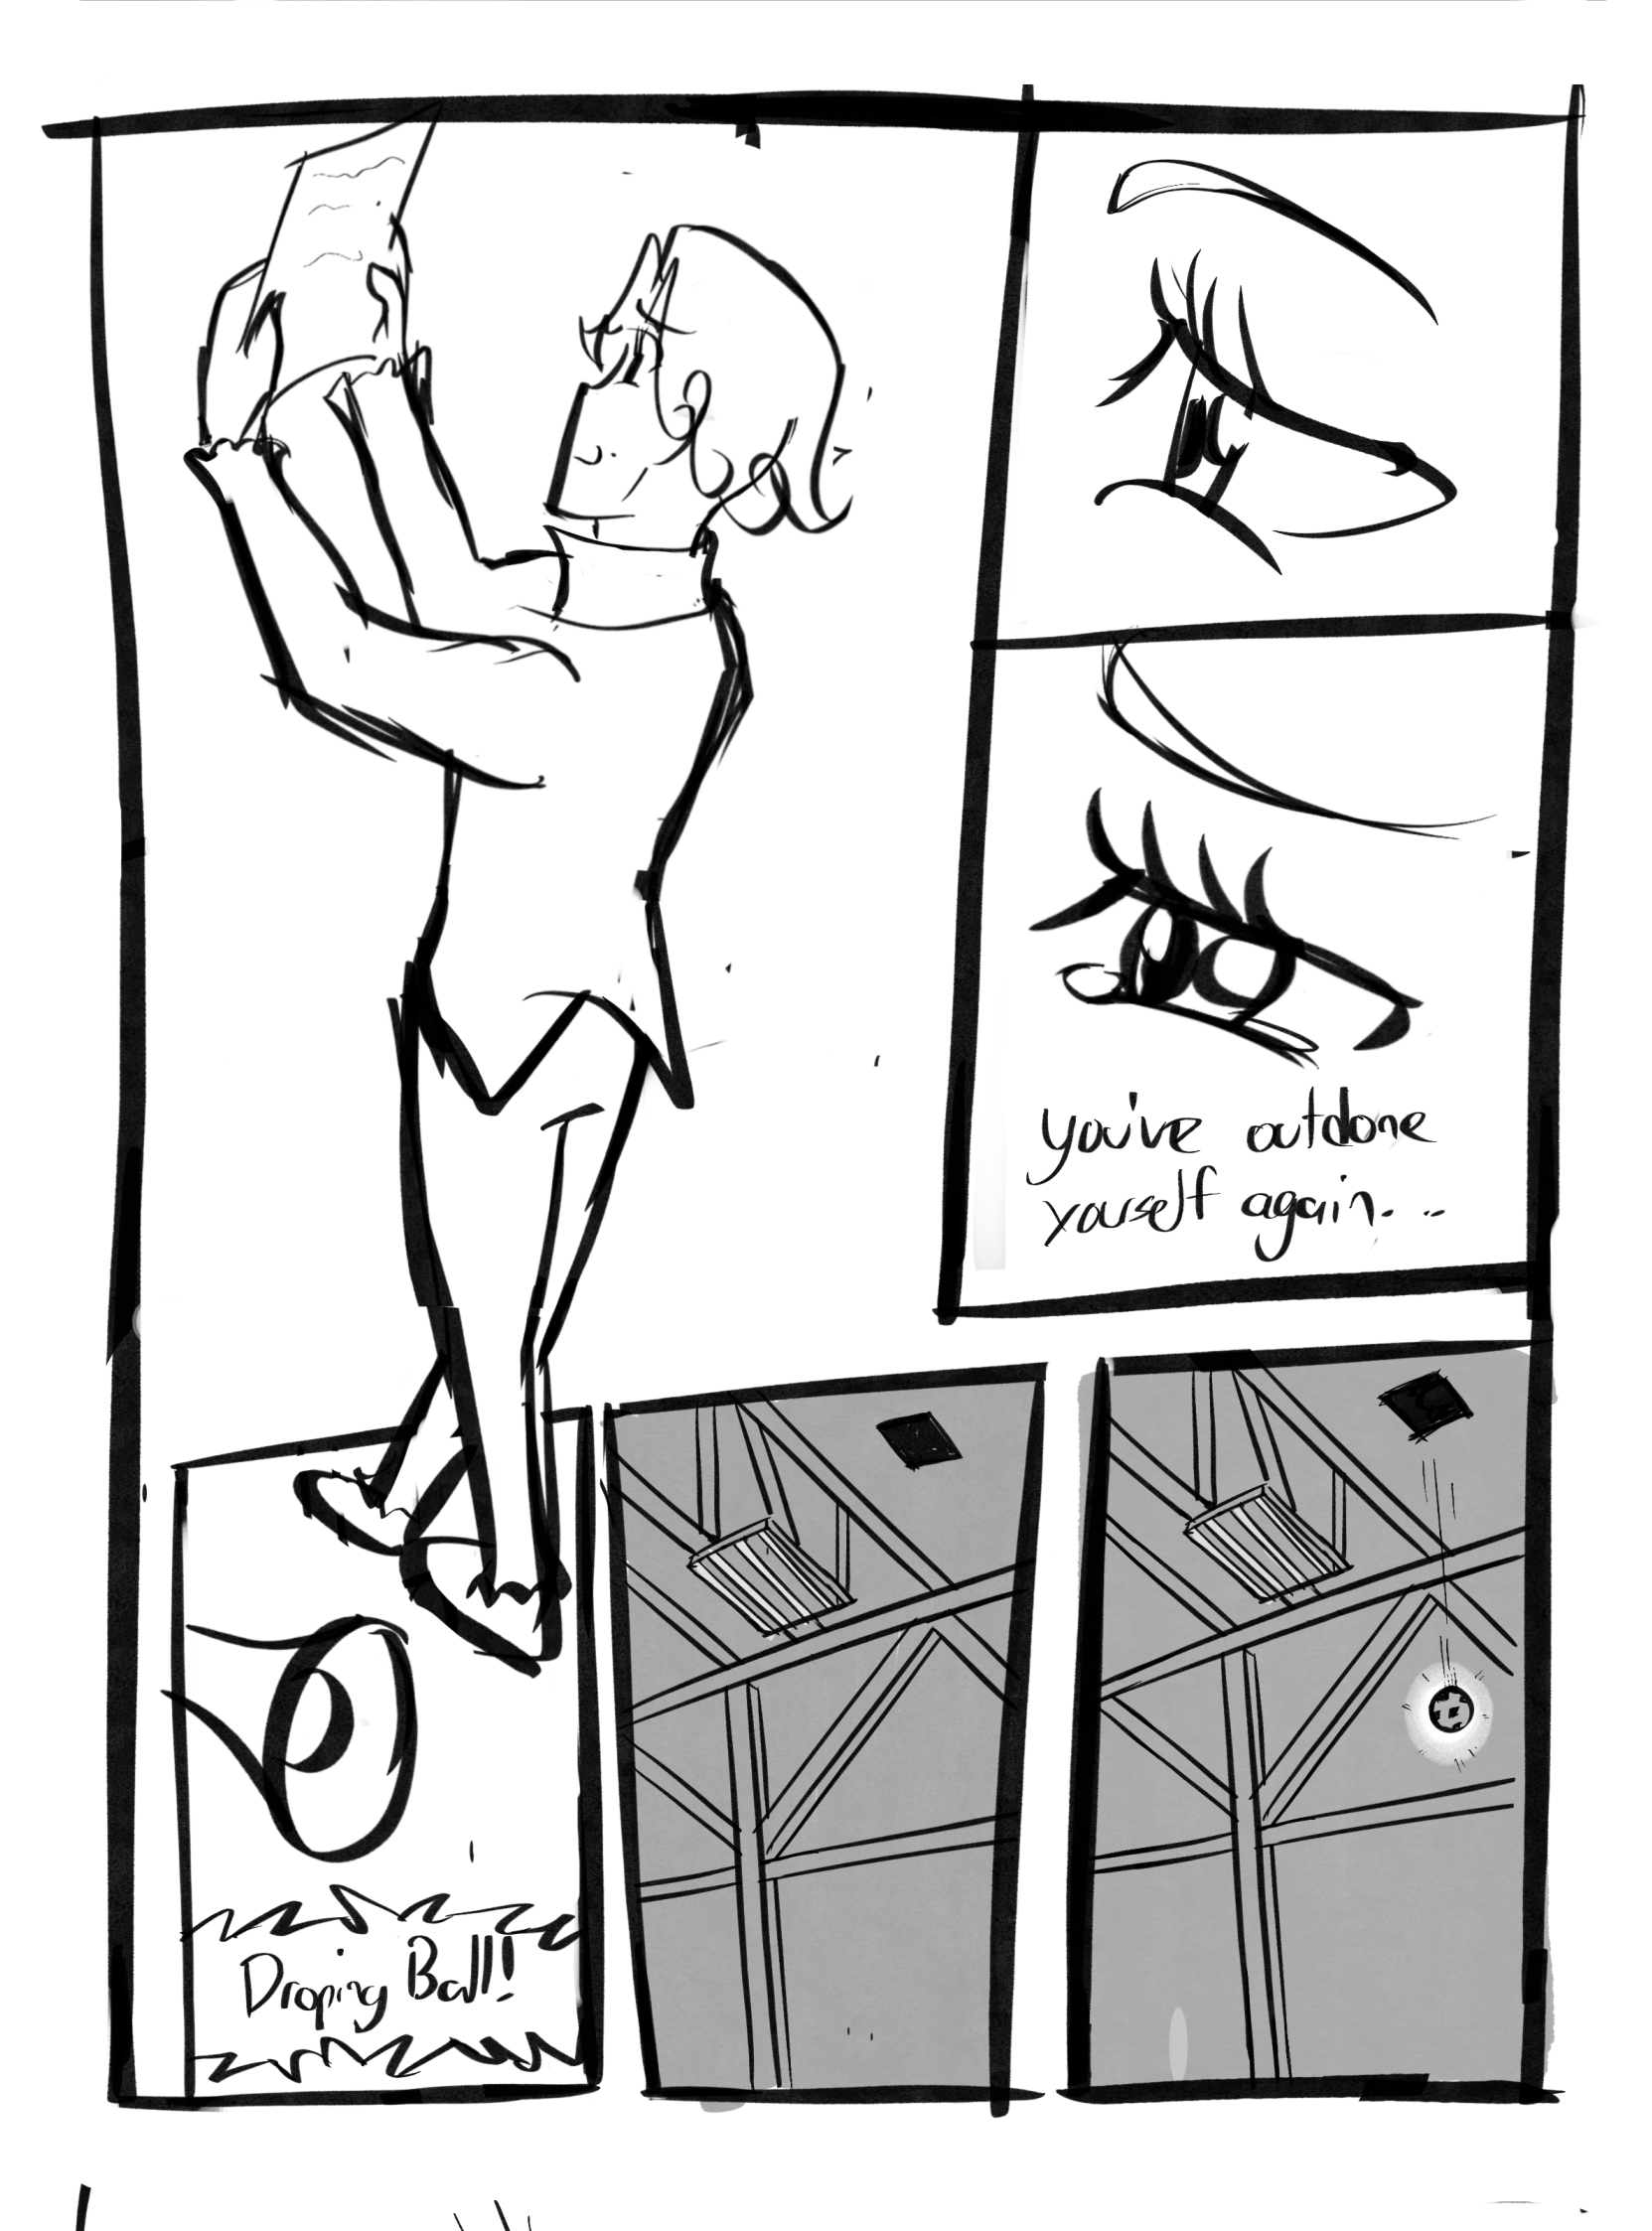 you've outdone
yourself again...
Droping Ball!